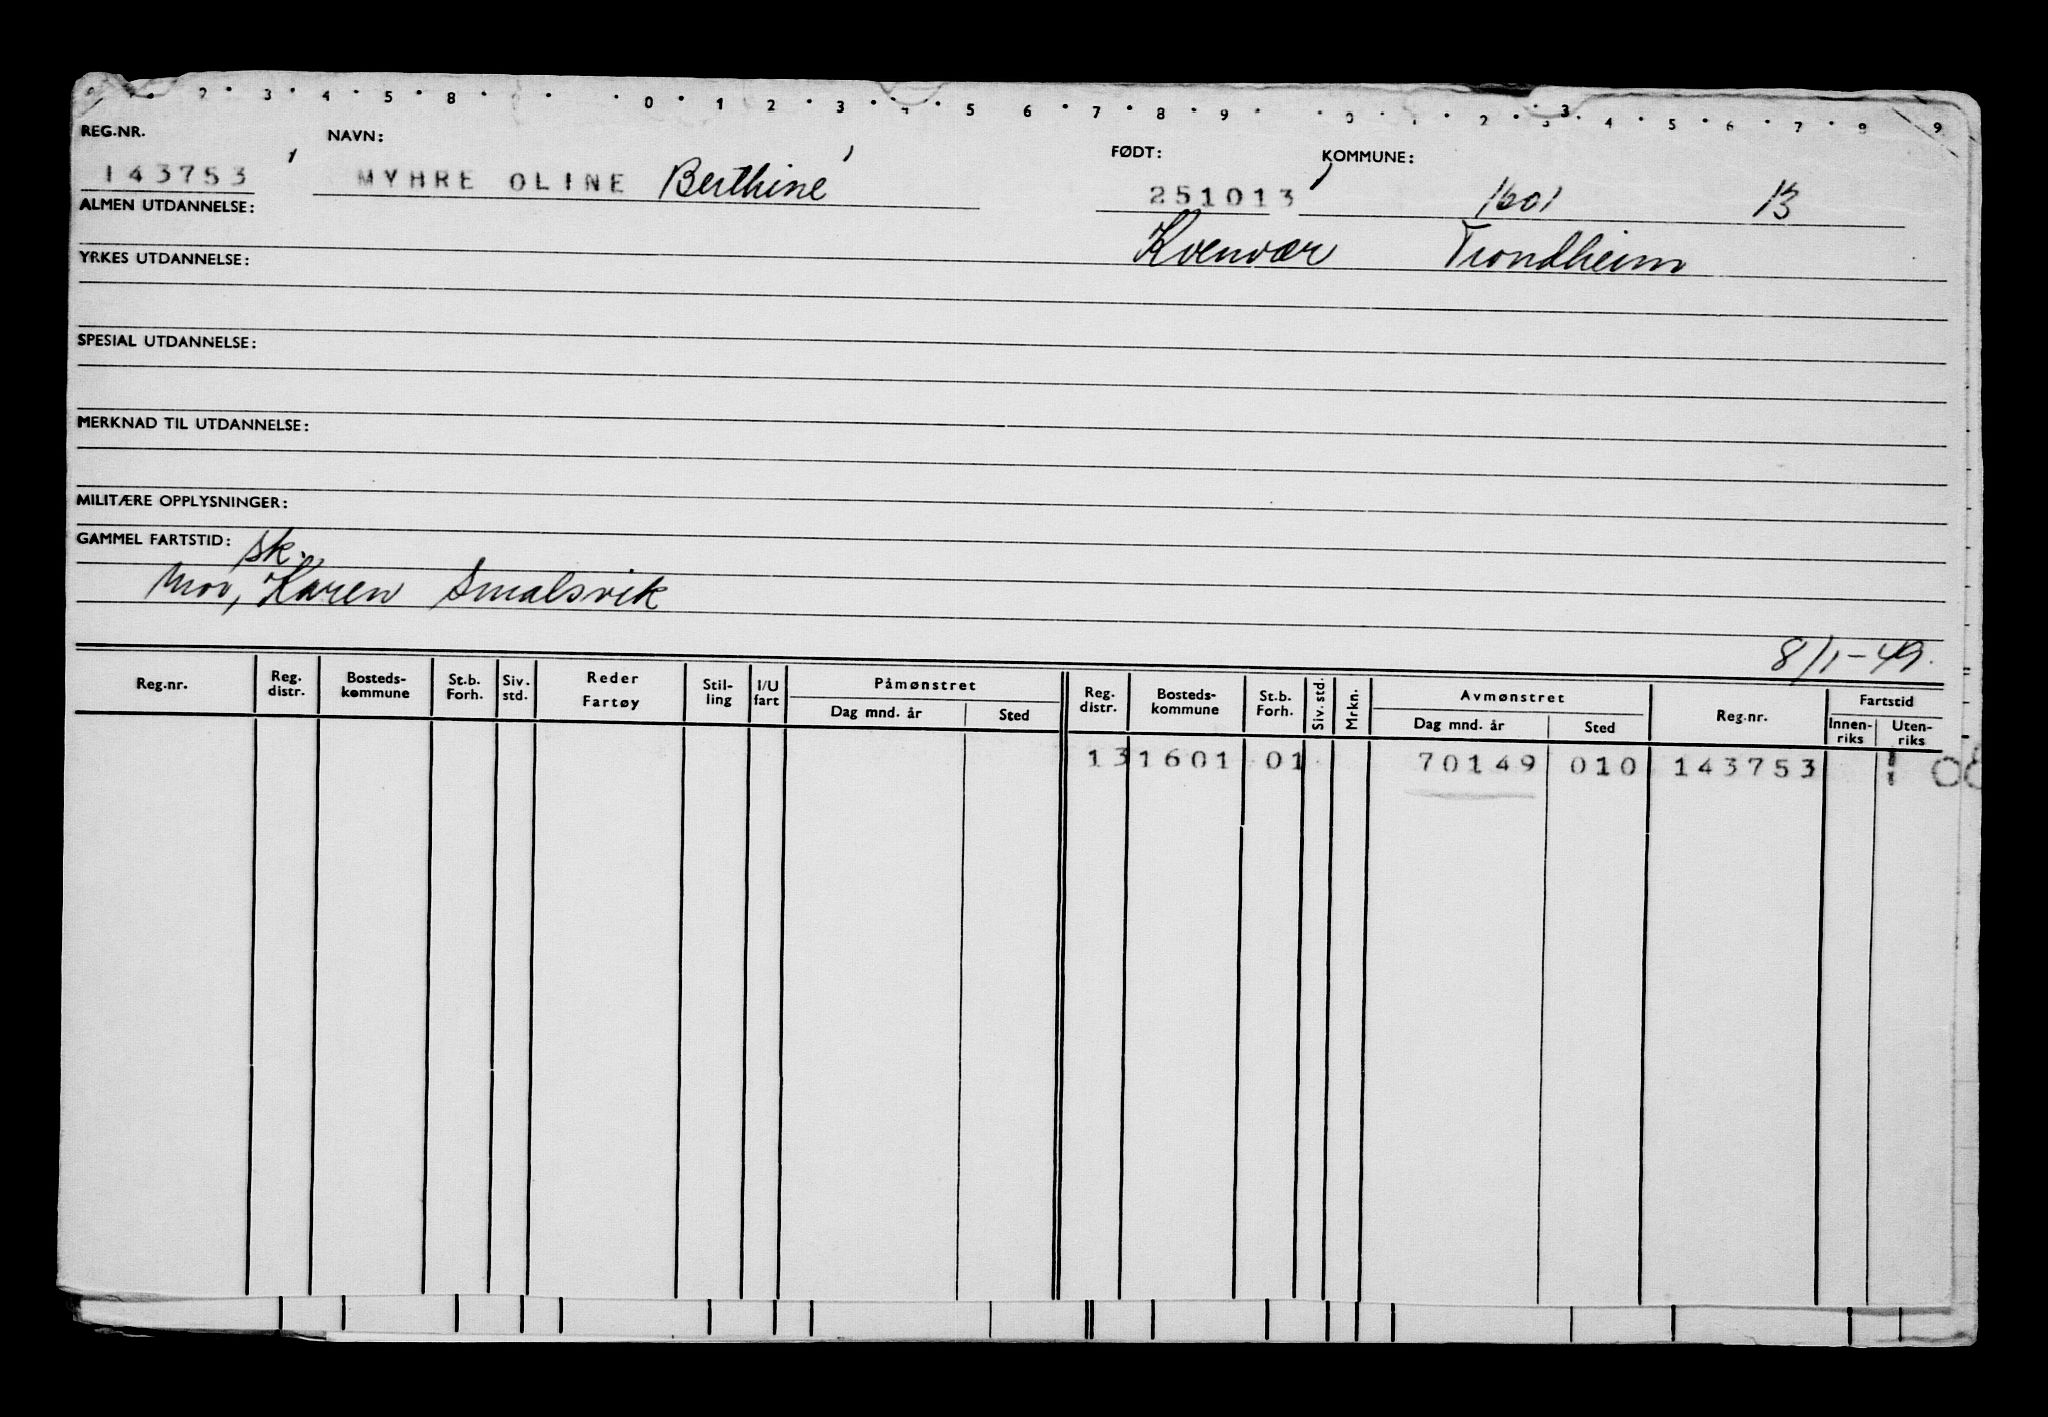 2 3 4 5 8 0 1 2 3 4 5 6 7 8 9 0 1 2 3 4 5 6 7 8 9
3
REG.NR. NAVN: FØDT: KOMMUNE:
143753 MYHRE OLINE Berthine 251013 1601 13
ALMEN UTDANNELSE:
Kvenvær Trondheim
YRKES UTDANNELSE:
SPESIAL UTDANNELSE:
MERKNAD TIL UTDANNELSE:
MILITÆRE OPPLYSNINGER:
GAMMEL FARTSTID: sk.
Mor, Karen Smalsvik
8/1-49.
Reg.nr. Reg. distr. Bosteds-kommune St.b. Forh. Siv. std. Reder Fartøy Stil-ling I/U fart Påmønstret Dag mnd. år Sted Reg. distr. Bosteds-kommune St.b. Forh. Siv. std. Mrkn. Avmønstret Dag mnd. år Sted Reg.nr. Fartstid Innen-riks Uten-riks
13 1601 01 70149 010 143753